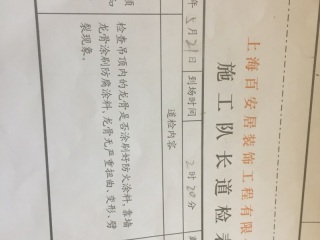 上海百安居装饰工程有限
施工队长巡检表
年 月21日 到场时间 2时20分
巡检内容
检查吊顶内的龙骨是否涂刷好防火涂料、靠墙
龙骨涂刷防腐涂料、龙骨无严重扭曲、变形、劈
裂现象。
项